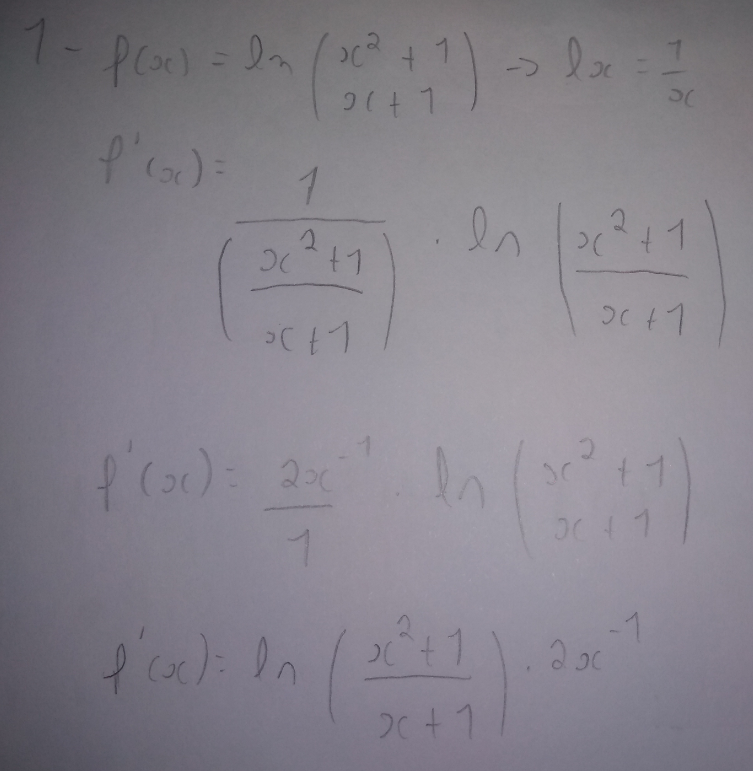 1 - f(x) = ln (x² + 1 / x + 1) -> lx = 1/x
f'(x) = 1 / ((x² + 1) / (x + 1)) . ln ((x² + 1) / (x + 1))
f'(x) = 2x⁻¹ / 1 . ln (x² + 1 / x + 1)
f'(x) = ln ((x² + 1) / (x + 1)) . 2x⁻¹